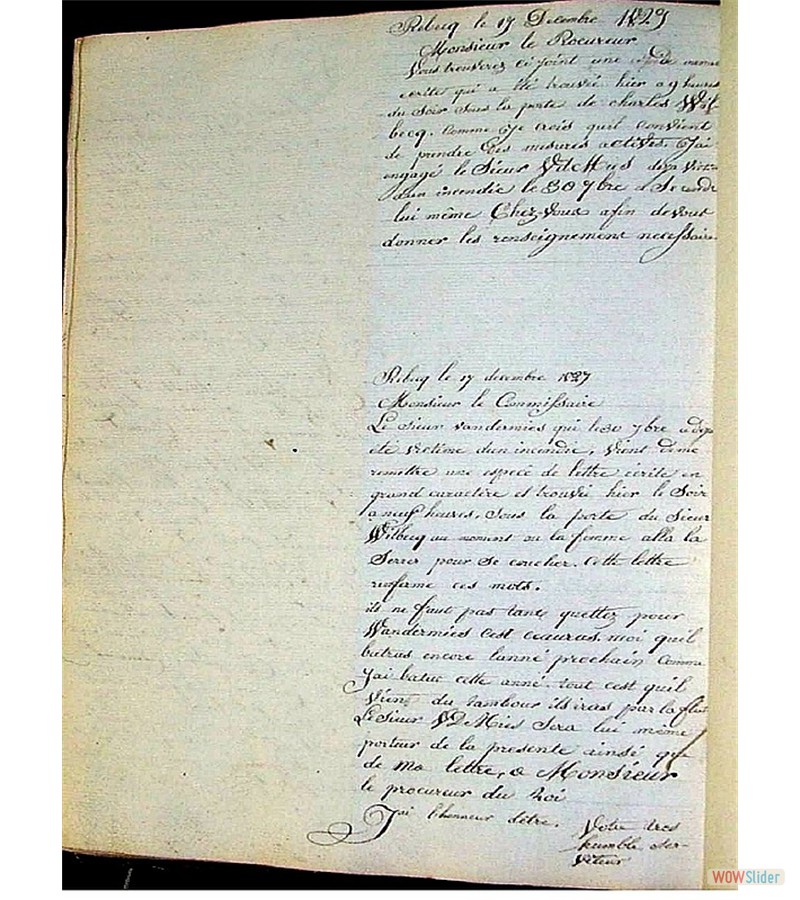 Rebecq le 17 Decembre 1827
Monsieur le Rocureur
Vous trouverez ci joint une
écrite qui a été trouvée hier a 9 heures
du Soir Sous la porte de charles Wil-
becq. Comme Je crois quil convient
de prendre des mesures actives. J'ai
engagé le Sieur VdMies deja victi
dun incendie le 30 7bre a Se rendr
lui même Chez-Vous afin devous
donner les renseignement necessaire
Rebecq le 17 decembre 1827
Monsieur le Commissaire
Le Sieur vandermies qui le 30 7bre a deja
été victime dun incendie, vient de me
remettre une espece de lettre écrite en
grand caractère et trouvée hier le Soir
a neuf heures. Sous la porte du Sieur
Wilbecq au moment ou la femme alla la
Serrer pour Se coucher. Cette lettre
renferme ces mots.
ils ne faut pas tant quettez pour
Wandermies Cest ceauras moi quil
batras encore lanné prochain Comme
J'ai batue cette anné. tout cest quil
vient du tambour ils iras par la flut
Le Sieur VDMies Sera lui même
porteur de la presente ainsi que
de Ma lettre, a Monsieur
le procureur du Roi
J'ai l'honneur d'être. Votre tres
humble Ser-
viteur
WOWSlider